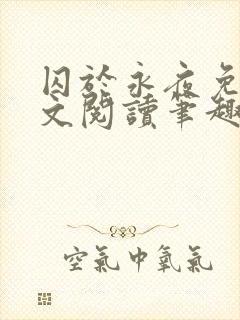 囚於永夜免
文閱讀筆趣
空氣中氧氣